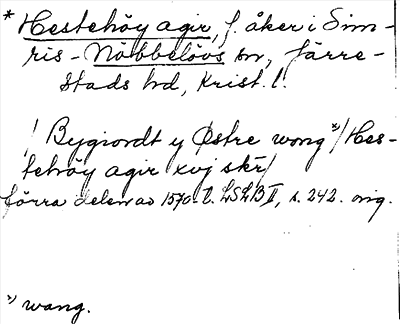 * Hestehöy agir, f. åker i Sim-
ris-Nöbbelövs sn, Järre-
stads hd, Krist. l.
/ Bygiordt y Østre wong x)/ Hes-
tehöy agir xvj skr/
förra delen av 1570-t. LSLB II, s. 242. orig.
x) wang.